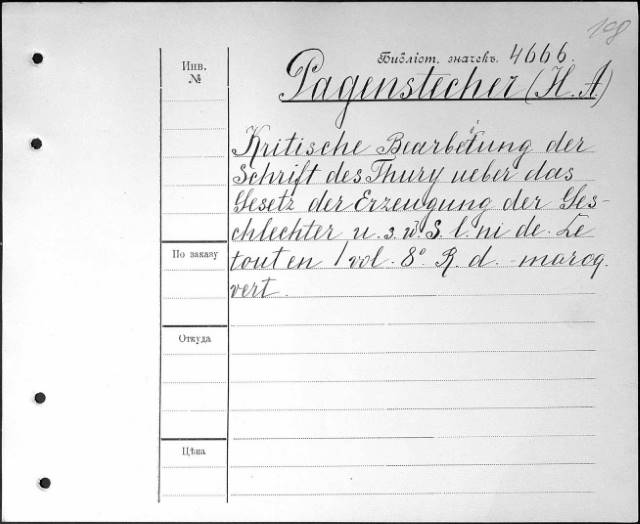 108
Библіот. значекъ. 4666.
Инв.
№
Pagenstecher (H. A)
Kritische Bearbeitung der
Schrift des Thury ueber das
Gesetz der Erzeugung der Ges-
chlechter u. s. w S. l. ni de. Le
tout en 1 vol. 8° R. d. maroq.
vert.
По заказу
Откуда
Цѣна